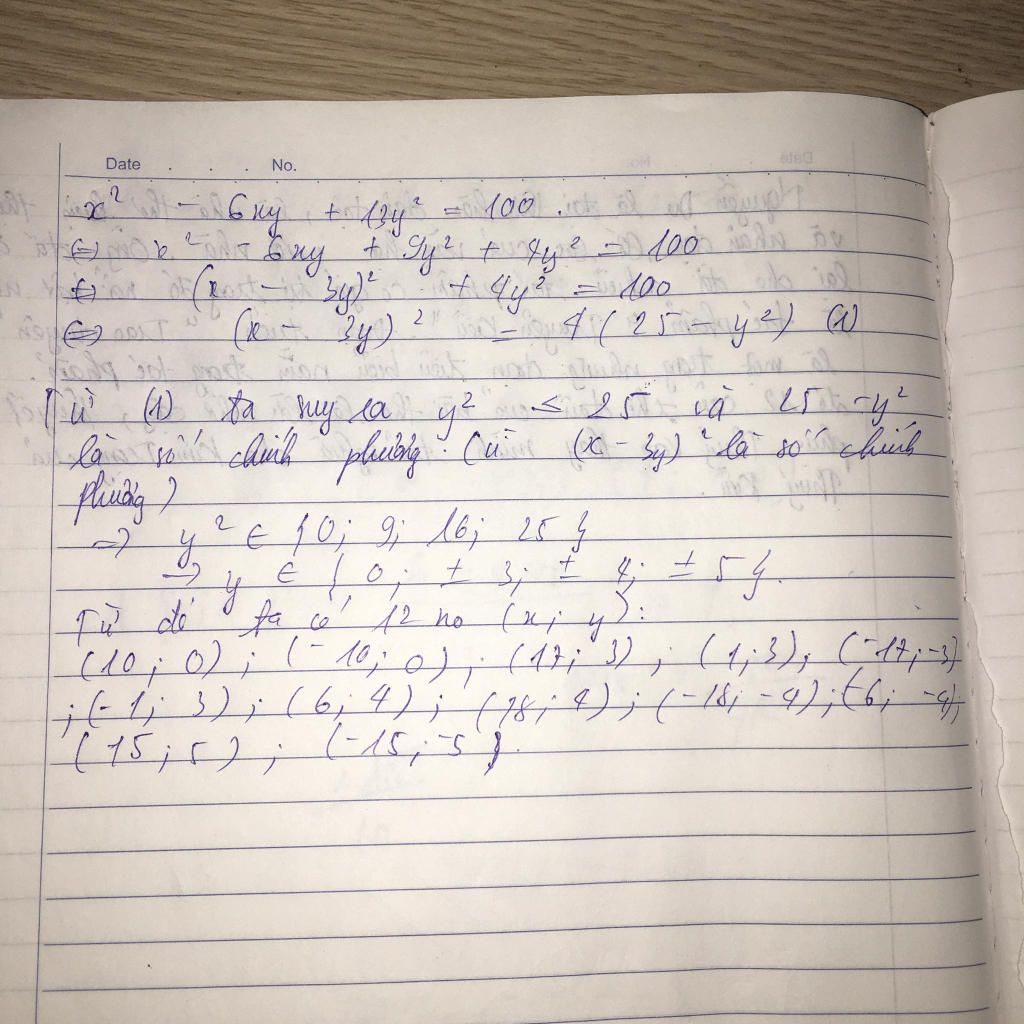 Date No.
x² - 6xy + 13y² = 100.
⇔ x² - 6xy + 9y² + 4y² = 100
⇔ (x - 3y)² + 4y² = 100
⇔ (x - 3y)² = 4(25 - y²) (1)
Từ (1) ta suy ra y² ≤ 25 và 25 - y²
là số chính phương. (vì (x - 3y)² là số chính
phương)
→ y² ∈ {0; 9; 16; 25}
→ y ∈ {0; ± 3; ± 4; ± 5}.
Từ đó ta có 12 no (x; y):
(10; 0); (-10; 0); (17; 3); (1; 3); (-17; -3)
; (-1; 3); (6; 4); (18; 4); (-18; -4); (-6; -4);
(15; 5); (-15; -5).